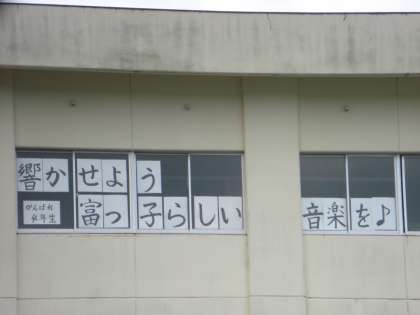 響かせよう
富っ子らしい 音楽を♪
がんばれ
6年生